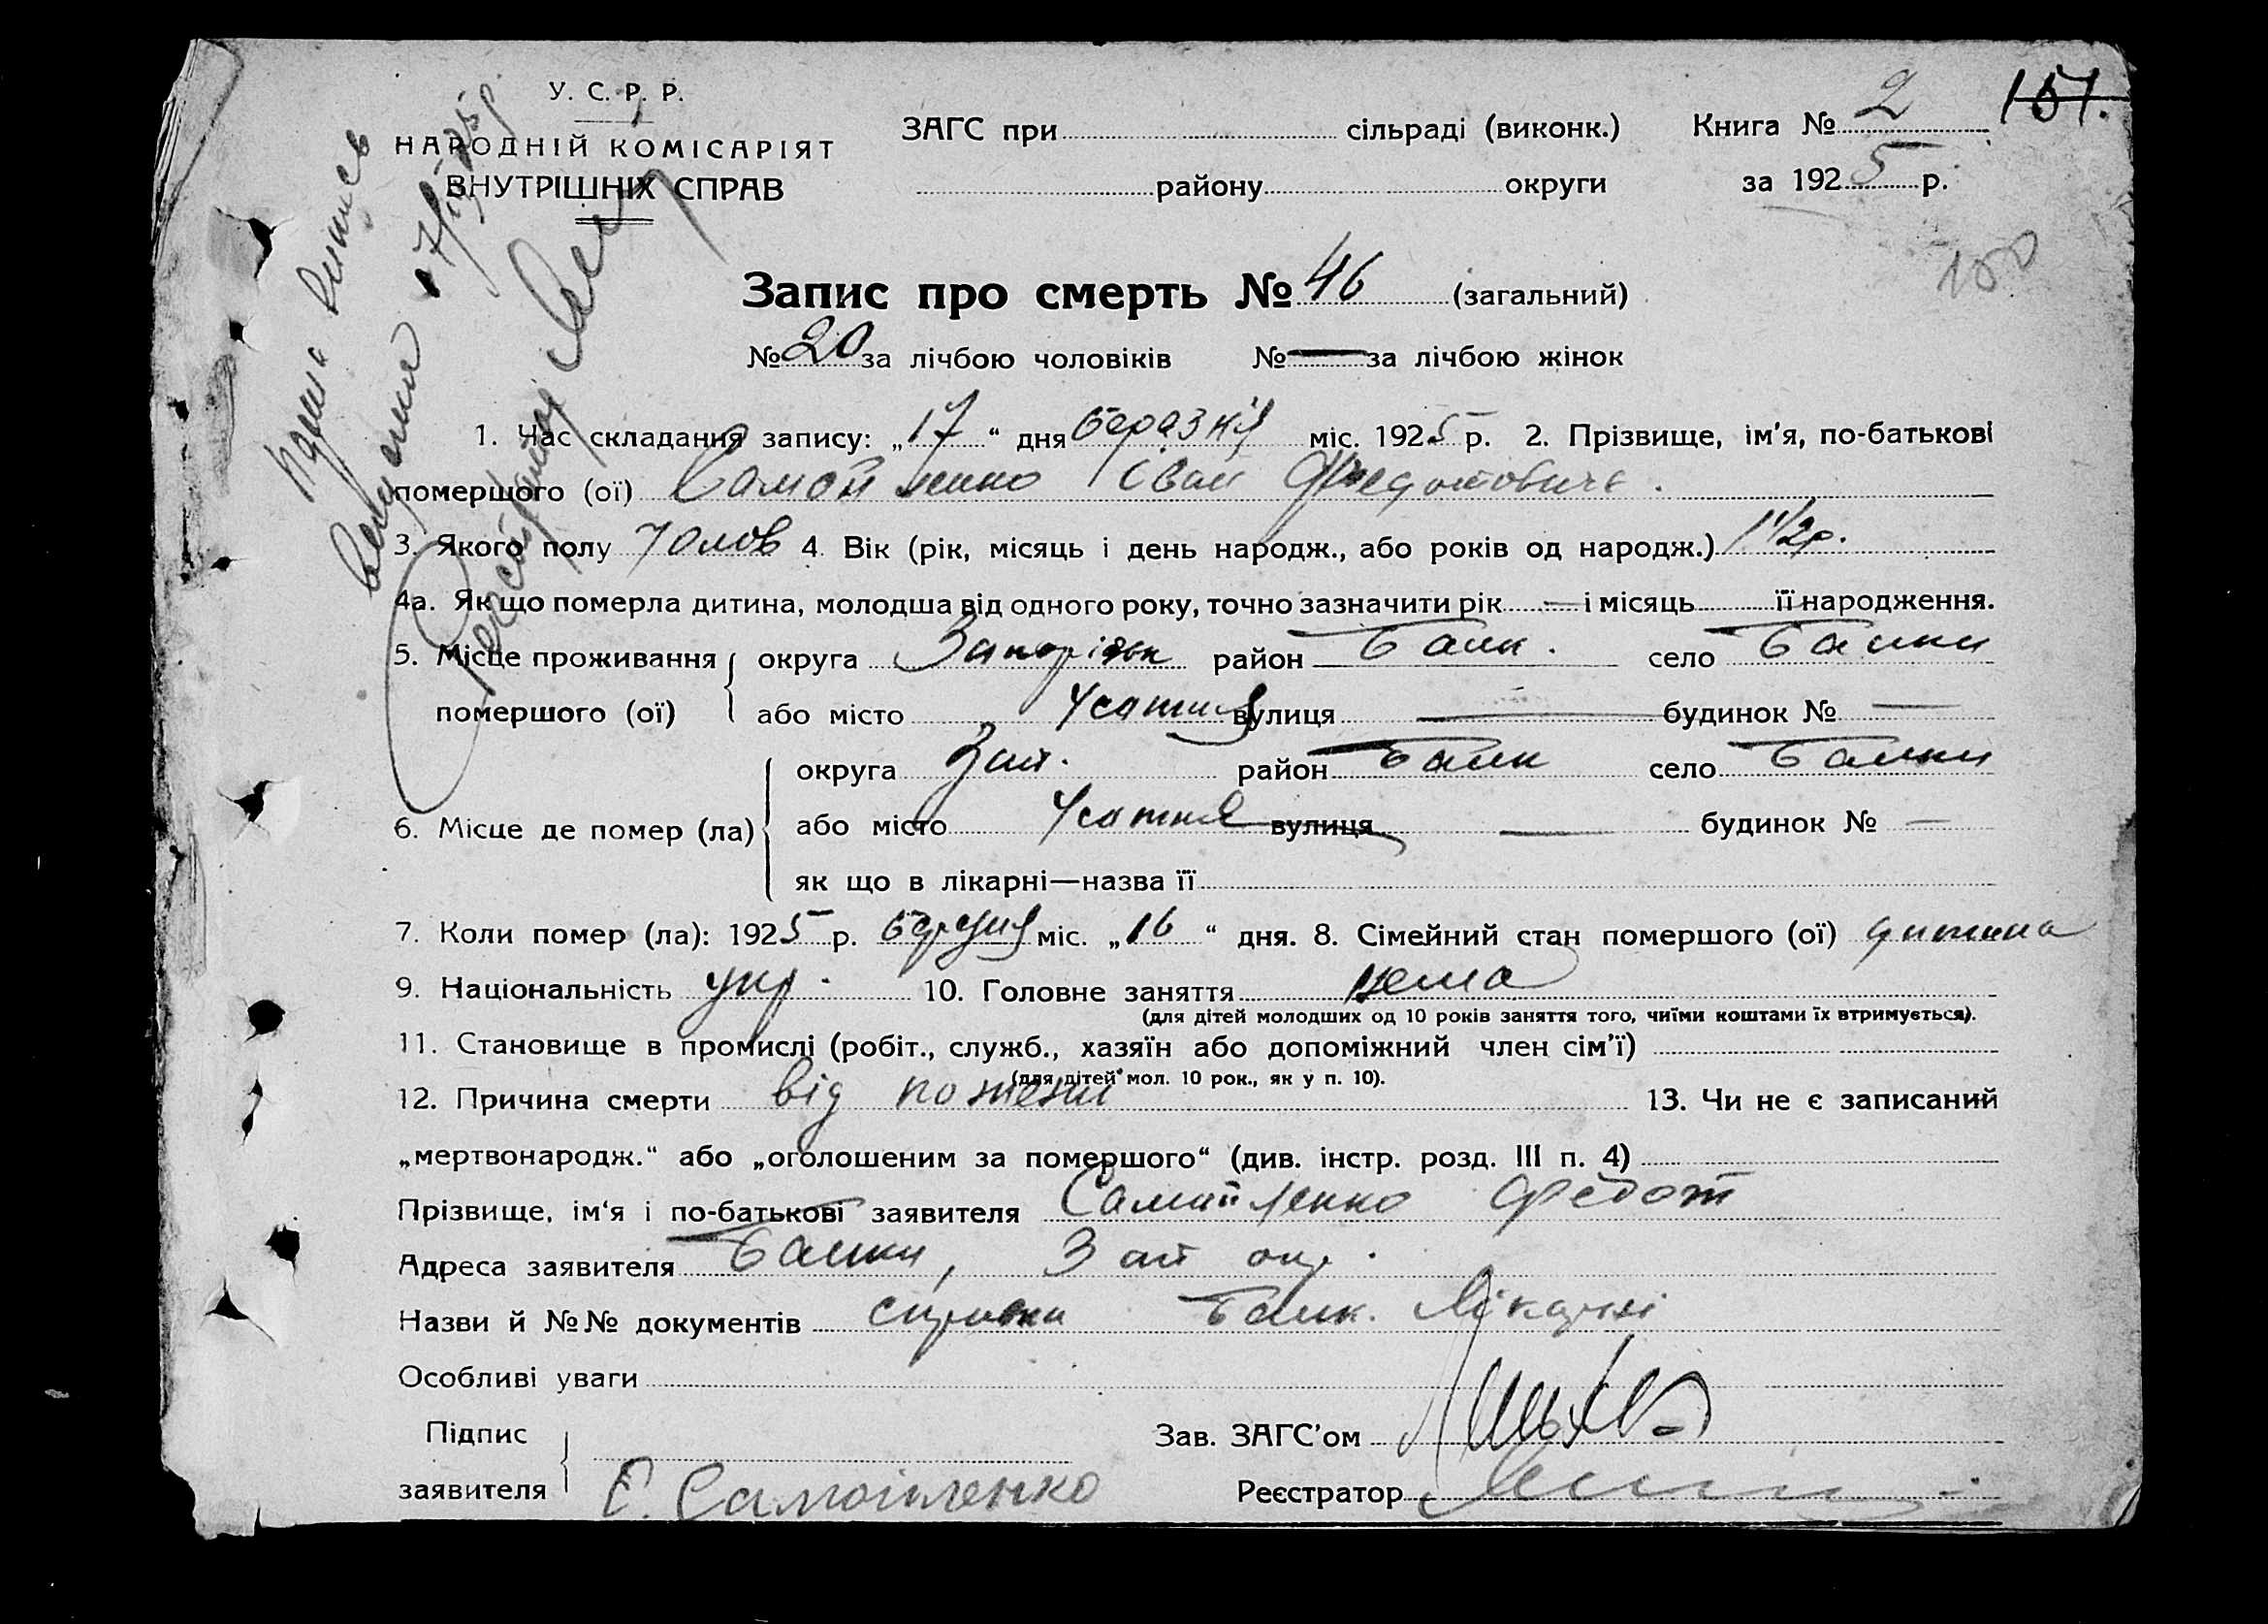 У. С. Р. Р.
НАРОДНІЙ КОМІСАРІЯТ
ВНУТРІШНІХ СПРАВ
ЗАГС при сільраді (виконк.)
району округи
Книга № 2
за 1925 р.
151.
150
Запис про смерть № 46 (загальний)
№ 20 за лічбою чоловіків № — за лічбою жінок
1. Час складання запису: „17“ дня березня міс. 1925 р. 2. Прізвище, ім'я, по-батькові
помершого (ої) Самойленко Іван Федотовичъ.
3. Якого полу Чолов 4. Вік (рік, місяць і день народж., або років од народж.) 1 1/2 р.
4а. Як що померла дитина, молодша від одного року, точно зазначити рік — і місяць її народження.
5. Місце проживання помершого (ої) округа Запоріжк район Балк. село Балки
або місто Усатия вулиця — будинок № —
6. Місце де помер (ла) округа Зап. район Балк село Балки
або місто Усатия вулиця — будинок № —
як що в лікарні—назва її
7. Коли помер (ла): 1925 р. березня міс. „16“ дня. 8. Сімейний стан помершого (ої) дитина
9. Національність укр. 10. Головне заняття нема
(для дітей молодших од 10 років заняття того, чиїми коштами їх втримується).
11. Становище в промислі (робіт., служб., хазяїн або допоміжний член сім'ї)
(для дітей мол. 10 рок., як у п. 10).
12. Причина смерти від пожежи 13. Чи не є записаний
„мертвонародж.“ або „оголошеним за помершого“ (див. інстр. розд. III п. 4)
Прізвище, ім'я і по-батькові заявителя Самийленко Федот
Адреса заявителя Балки, Зап окр.
Назви й №№ документів справка Балк. Лікарні
Особливі уваги
Підпис заявителя Самоіленко
Зав. ЗАГС'ом
Реєстратор